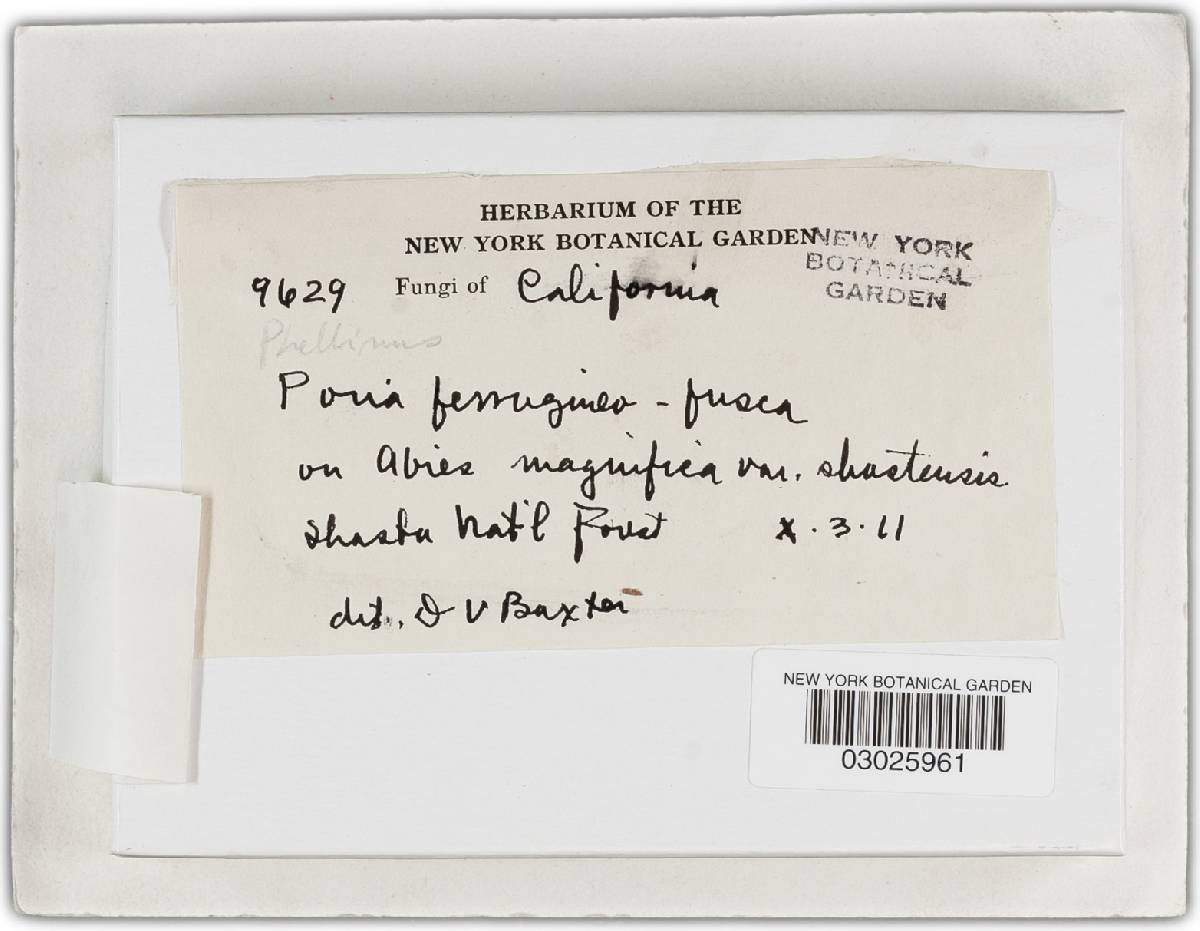 HERBARIUM OF THE
NEW YORK BOTANICAL GARDEN
NEW YORK
BOTANICAL
GARDEN
9629 Fungi of California
Phellinus
Poria ferrugineo-fusca
on Abies magnifica var. shastensis
Shasta Nat'l Forest X.3.11
det. D V Baxter
NEW YORK BOTANICAL GARDEN
03025961